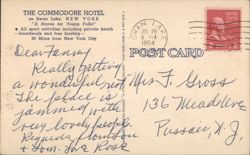 THE COMMODORE HOTEL
on Swan Lake, NEW YORK
"A Haven for Young Folks"
● All sport activities including private beach
—handballs and free boating—
90 Miles from New York City
SWAN LAKE
1954
POST CARD
Dear Fanny
Really getting
a wonderful rest.
The place is
jammed with
very lovely people.
Regards
Rose
Mrs F. Gross
136 Meadow
Passaic, N.J.